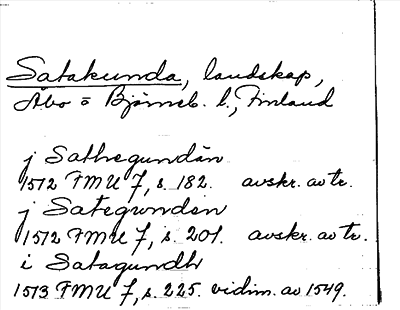 Satakunda, landskap,
Åbo o Björneb. l., Finland
j Sathegundän
1512 FMU 7, s. 182. avskr. av tr.
j Sategunden
1512 FMU 7, s. 201. avskr. av tr.
i Satagundh
1513 FMU 7, s. 225. vidim. av 1549.